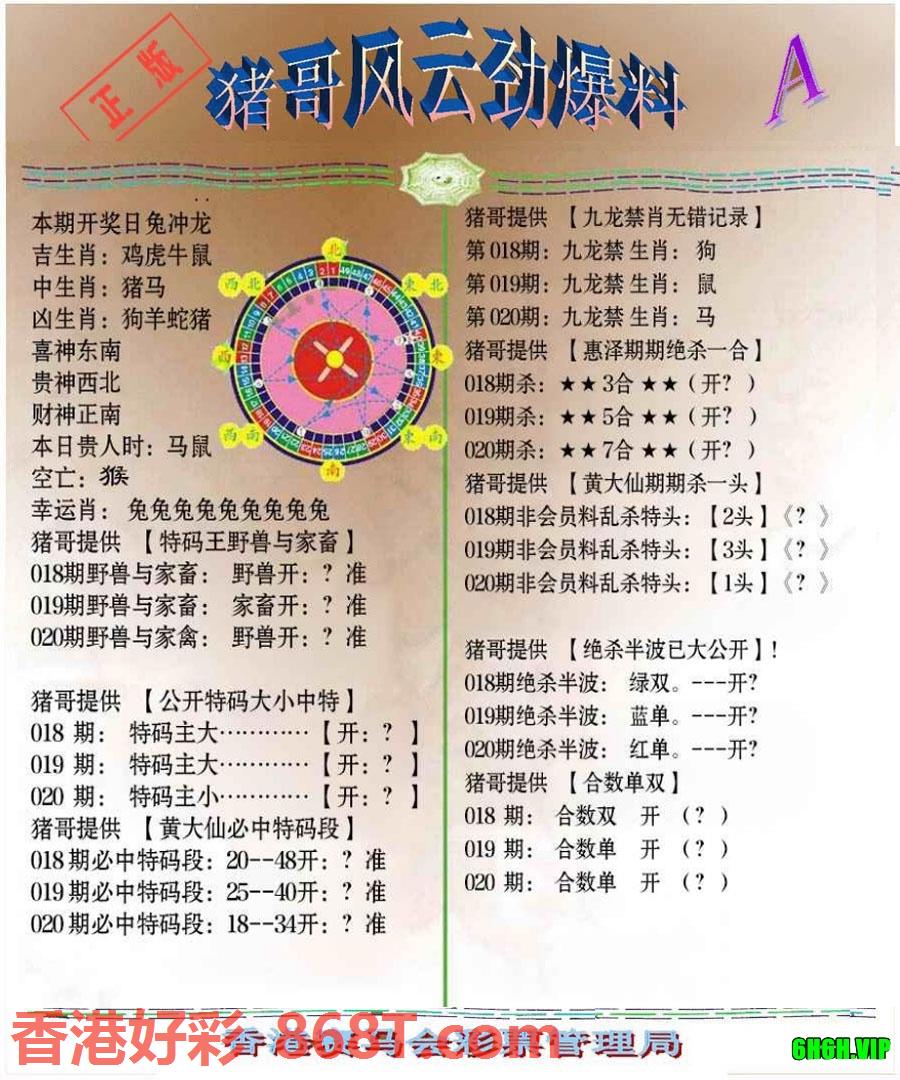 正版
猪哥风云劲爆料
A
本期开奖日兔冲龙
吉生肖：鸡虎牛鼠
中生肖：猪马
凶生肖：狗羊蛇猪
喜神东南
贵神西北
财神正南
本日贵人时：马鼠
空亡：猴
幸运肖： 兔兔兔兔兔兔兔兔兔
猪哥提供 【特码王野兽与家畜】
018期野兽与家畜： 野兽开：？准
019期野兽与家畜： 家畜开：？准
020期野兽与家禽： 野兽开：？准
猪哥提供 【公开特码大小中特】
018 期： 特码主大…………【开：？】
019 期： 特码主大…………【开：？】
020 期： 特码主小…………【开：？】
猪哥提供 【黄大仙必中特码段】
018期必中特码段：20--48开：？准
019期必中特码段：25--40开：？准
020期必中特码段：18--34开：？准
北
西北
東北
西
東
西南
東南
南
猪哥提供 【九龙禁肖无错记录】
第018期：九龙禁 生肖： 狗
第019期：九龙禁 生肖： 鼠
第020期：九龙禁 生肖： 马
猪哥提供 【惠泽期期绝杀一合】
018期杀：★★3合★★（开？）
019期杀：★★5合★★（开？）
020期杀：★★7合★★（开？）
猪哥提供 【黄大仙期期杀一头】
018期非会员料乱杀特头：【2头】《？》
019期非会员料乱杀特头：【3头】《？》
020期非会员料乱杀特头：【1头】《？》
猪哥提供 【绝杀半波已大公开】！
018期绝杀半波： 绿双。---开？
019期绝杀半波： 蓝单。---开？
020期绝杀半波： 红单。---开？
猪哥提供 【合数单双】
018 期： 合数双 开 （？）
019 期： 合数单 开 （？）
020 期： 合数单 开 （？）
香港好彩 868T.com
香港赛马会彩票管理局
6H6H.VIP